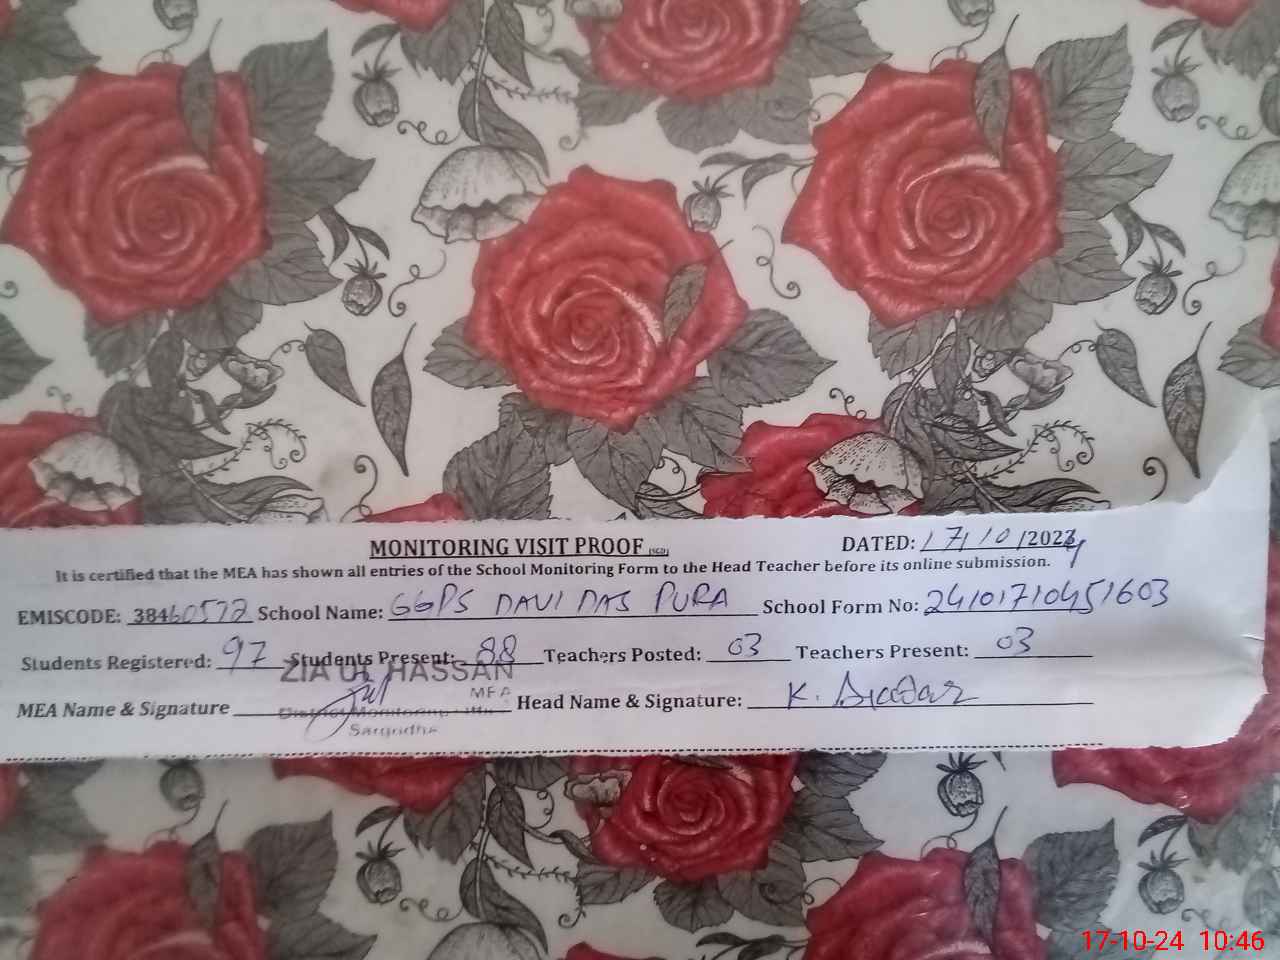 MONITORING VISIT PROOF (SGD) DATED: 17/10/2024
It is certified that the MEA has shown all entries of the School Monitoring Form to the Head Teacher before its online submission.
EMISCODE: 38460572 School Name: GGPS DAVI DAS PURA School Form No:
Students Registered: 97 Students Present: 88 Teachers Posted: 03 Teachers Present: 03
ZIA UL HASSAN
MEA
MEA Name & Signature Head Name & Signature: K.
District Monitoring
Sargodha
17-10-24 10:46